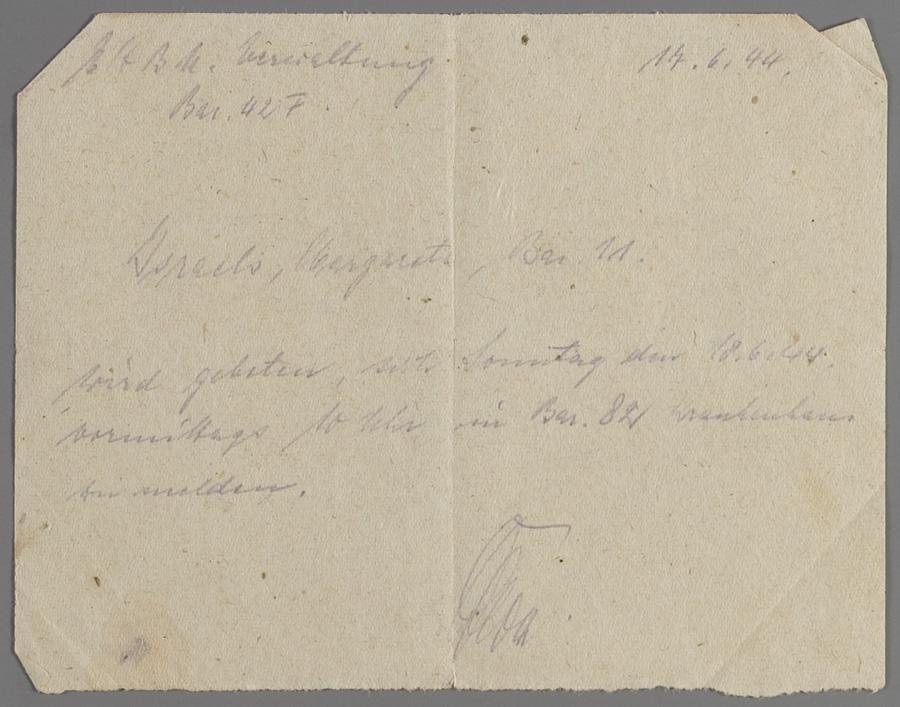 Verwaltung 17.6.44.
Bar. 42 F
Israels, Margarete, Bar. 11.
wird gebeten, sich Sonntag den 18.6.44.
vormittags 10 Uhr in Bar. 82 Krankenhaus
zu melden.